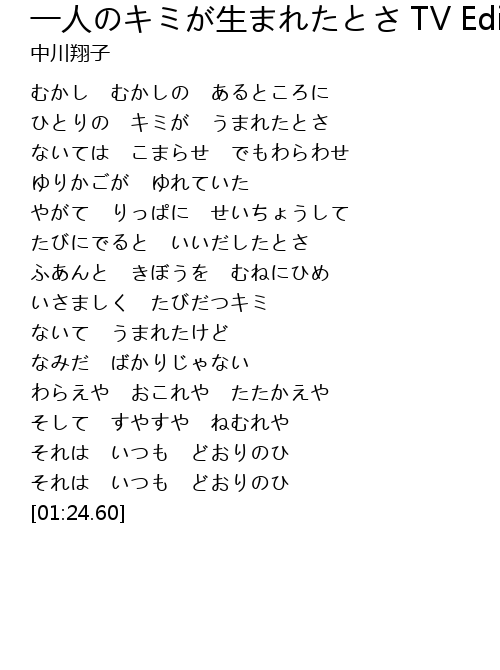 一人のキミが生まれたとさ TV Edi
中川翔子
むかし　むかしの　あるところに
ひとりの　キミが　うまれたとさ
ないては　こまらせ　でもわらわせ
ゆりかごが　ゆれていた
やがて　りっぱに　せいちょうして
たびにでると　いいだしたとさ
ふあんと　きぼうを　むねにひめ
いさましく　たびだつキミ
ないて　うまれたけど
なみだ　ばかりじゃない
わらえや　おこれや　たたかえや
そして　すやすや　ねむれや
それは　いつも　どおりのひ
それは　いつも　どおりのひ
[01:24.60]